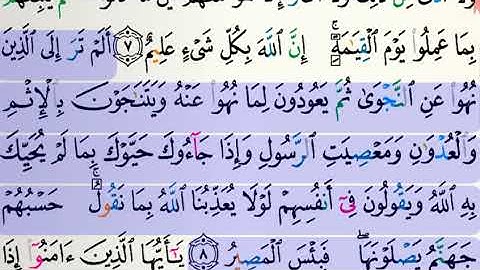 بِمَا عَمِلُوا۟ يَوْمَ ٱلْقِيَـٰمَةِ ۚ إِنَّ ٱللَّهَ بِكُلِّ شَىْءٍ عَلِيمٌ ٧ أَلَمْ تَرَ إِلَى ٱلَّذِينَ
نُهُوا۟ عَنِ ٱلنَّجْوَىٰ ثُمَّ يَعُودُونَ لِمَا نُهُوا۟ عَنْهُ وَيَتَنَـٰجَوْنَ بِٱلْإِثْمِ
وَٱلْعُدْوَٰنِ وَمَعْصِيَتِ ٱلرَّسُولِ وَإِذَا جَآءُوكَ حَيَّوْكَ بِمَا لَمْ يُحَيِّكَ
بِهِ ٱللَّهُ وَيَقُولُونَ فِىٓ أَنفُسِهِمْ لَوْلَا يُعَذِّبُنَا ٱللَّهُ بِمَا نَقُولُ ۚ حَسْبُهُمْ
جَهَنَّمُ يَصْلَوْنَهَا ۖ فَبِئْسَ ٱلْمَصِيرُ ٨ يَـٰٓأَيُّهَا ٱلَّذِينَ ءَامَنُوٓا۟ إِذَا